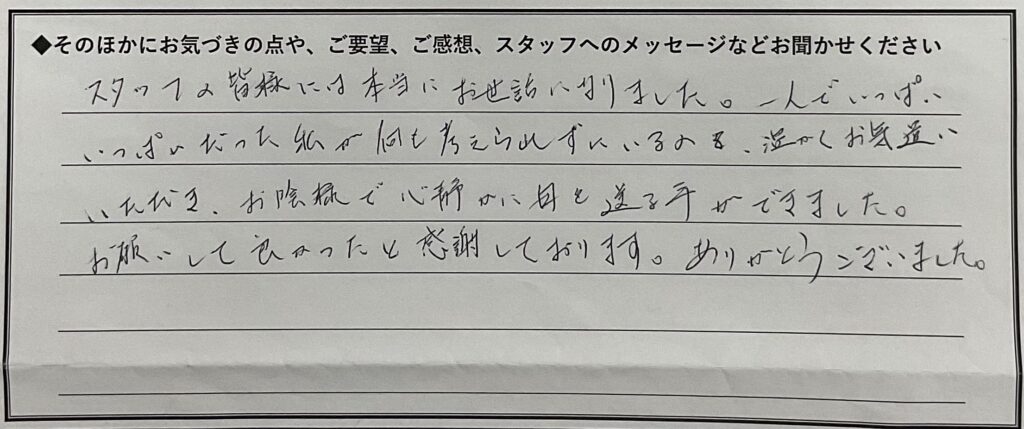 ◆そのほかにお気づきの点や、ご要望、ご感想、スタッフへのメッセージなどお聞かせください
スタッフの皆様には本当にお世話になりました。一人でいっぱい
いっぱいだった私が何も考えられずにいるのを、温かくお気遣い
いただき、お陰様で心静かに母を送る事ができました。
お願いして良かったと感謝しております。ありがとうございました。